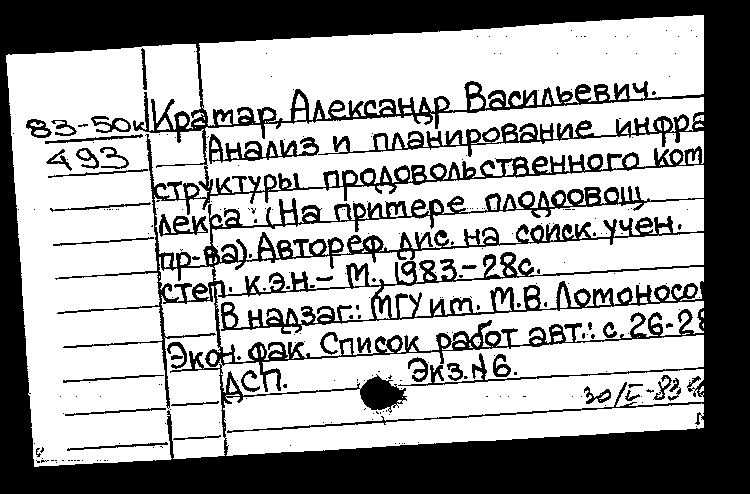 83-50к Кратар, Александр Васильевич.
493 Анализ и планирование инфра
структуры продовольственного ком
лекса: (На примере плодоовощ.
пр-ва). Автореф. дис. на соиск. учен.
степ. к.э.н. – М., 1983.–28с.
В надзаг.: МГУ им. М.В. Ломоносо
Экон. фак. Список работ авт.: с. 26-28
ДСП. Экз. №6.
30/I-83